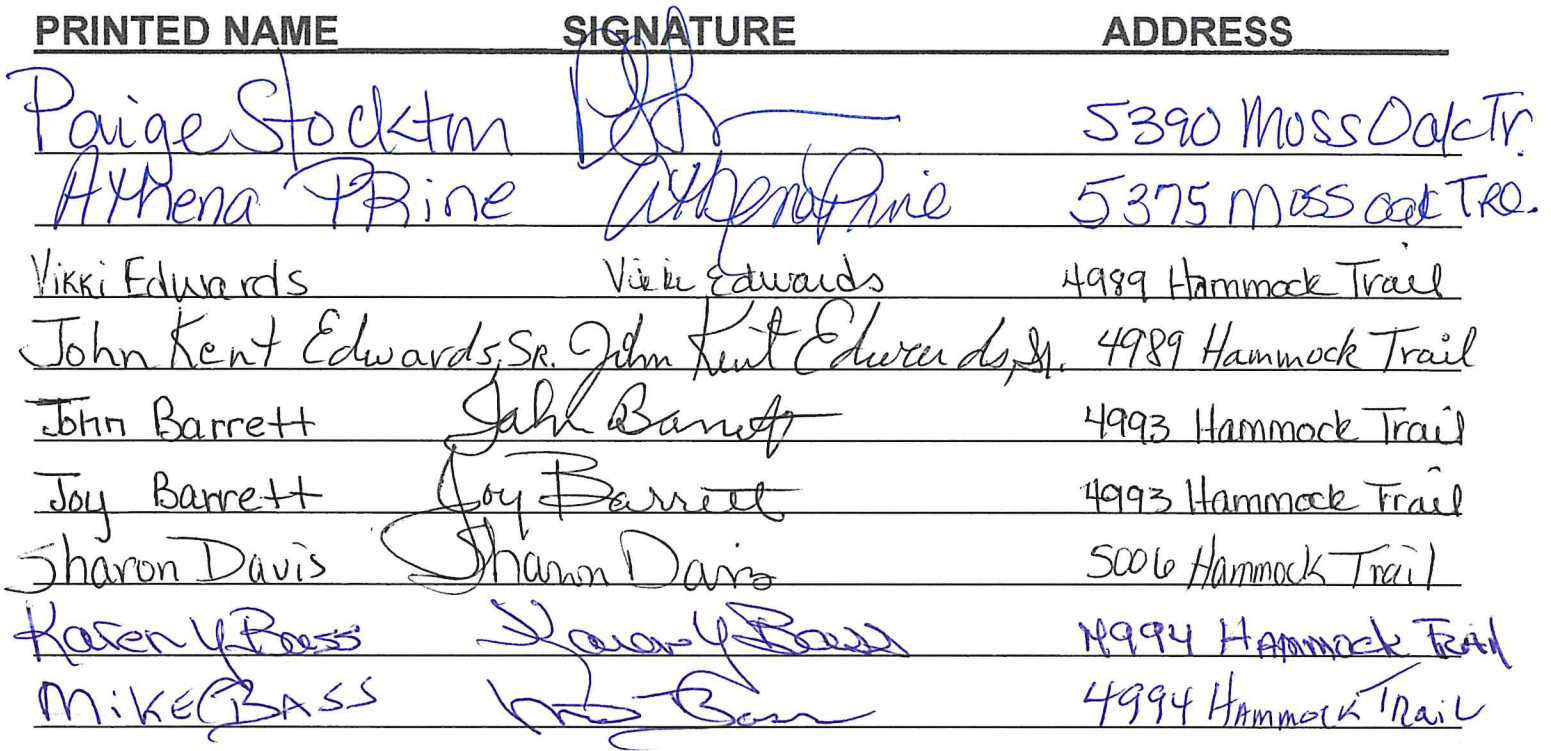 PRINTED NAME SIGNATURE ADDRESS
Paige Stockton 5390 Moss Oak Tr.
Athena PRine Athena Prine 5375 Moss oak TRL.
Vikki Edwards Vikki Edwards 4989 Hammock Trail
John Kent Edwards, SR. John Kent Edwards, Sr. 4989 Hammock Trail
John Barrett John Barrett 4993 Hammock Trail
Joy Barrett Joy Barrett 4993 Hammock Trail
Sharon Davis Sharon Davis 5006 Hammock Trail
Karen Y Bass Karen Y Bass 4994 Hammock Trail
Mike BASS Bass 4994 Hammock Trail